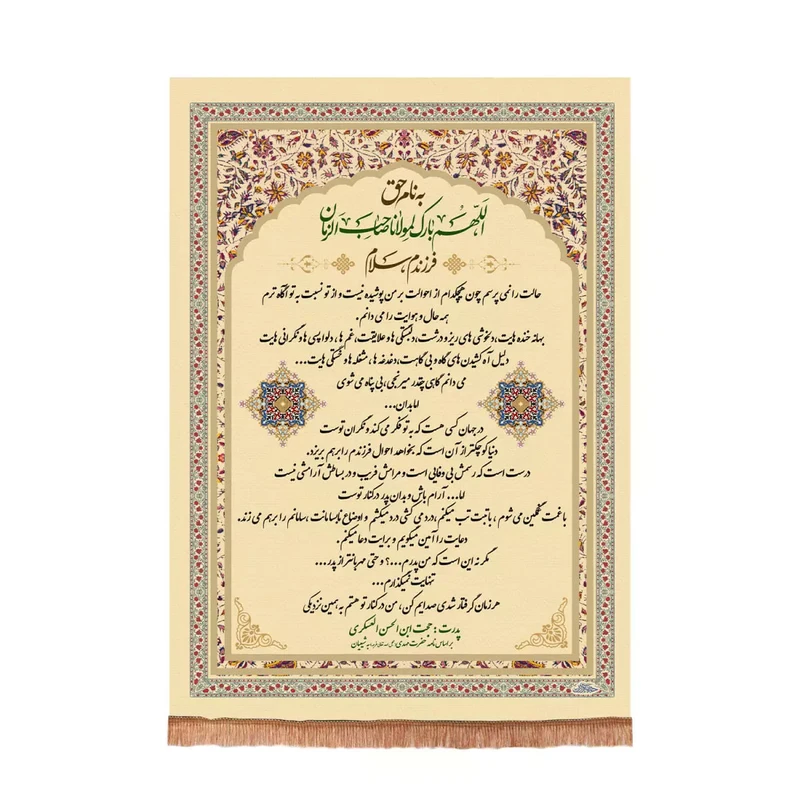 به نام حق
اللهم بارک لمولانا صاحب الزمان
فرزندم سلام
حالت را نمی پرسم چون هیچکدام از احوالت بر من پوشیده نیست و از تو نسبت به تو آگاه ترم
همه حال و هوایت را می دانم.
بهانه خنده هایت، دلخوشی های ریز و درشت، دلبستگی ها و علایقت، غم ها، دلواپسی ها و نگرانی هایت
دلیل آه کشیدن های گاه و بی گاهت، دغدغه ها، مشغله ها و خستگی هایت...
می دانم گاهی چقدر میرنجی، بی پناه می شوی
اما بدان...
در جهان کسی هست که به تو فکر می کند و نگران توست
دنیا کوچکتر از آن است که بخواهد احوال فرزندم را بر هم بریزد.
درست است که رسمش بی وفایی است و مرامش فریب و در بساطش آرامشی نیست
اما... آرام باش و بدان پدر در کنار توست
با غمت غمگین می شوم ، با تبت تب میکنم ،درد می کشی درد میکشم و اوضاع نابسامانت ،سامانم را بر هم می زند.
دعایت را آمین میگویم و برایت دعا میکنم.
مگر نه این است که من پدرم...؟ و حتی مهربانتر از پدر...
تنهایت نمیگذارم...
هر زمان گرفتار شدی صدایم کن ، من در کنار تو هستم به همین نزدیکی
پدرت : حجت ابن الحسن العسکری
بر اساس نامه حضرت مهدی به شیعیان